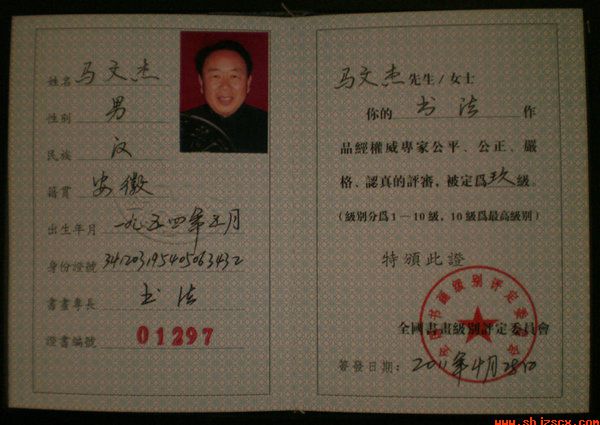 姓名 马文杰
性別 男
民族 汉
籍貫 安徽
出生年月 一九五四年五月
身份證號
書畫專長 书法
證書編號 01297
马文杰先生/女士
你的 书法 作
品經權威專家公平、公正、嚴
格、認真的評審，被定爲玖級。
(級別分爲1—10級，10級爲最高級別)
特頒此證
全國書畫級別評定委員會
簽發日期：2011年4月28日
www.shjzscx.com